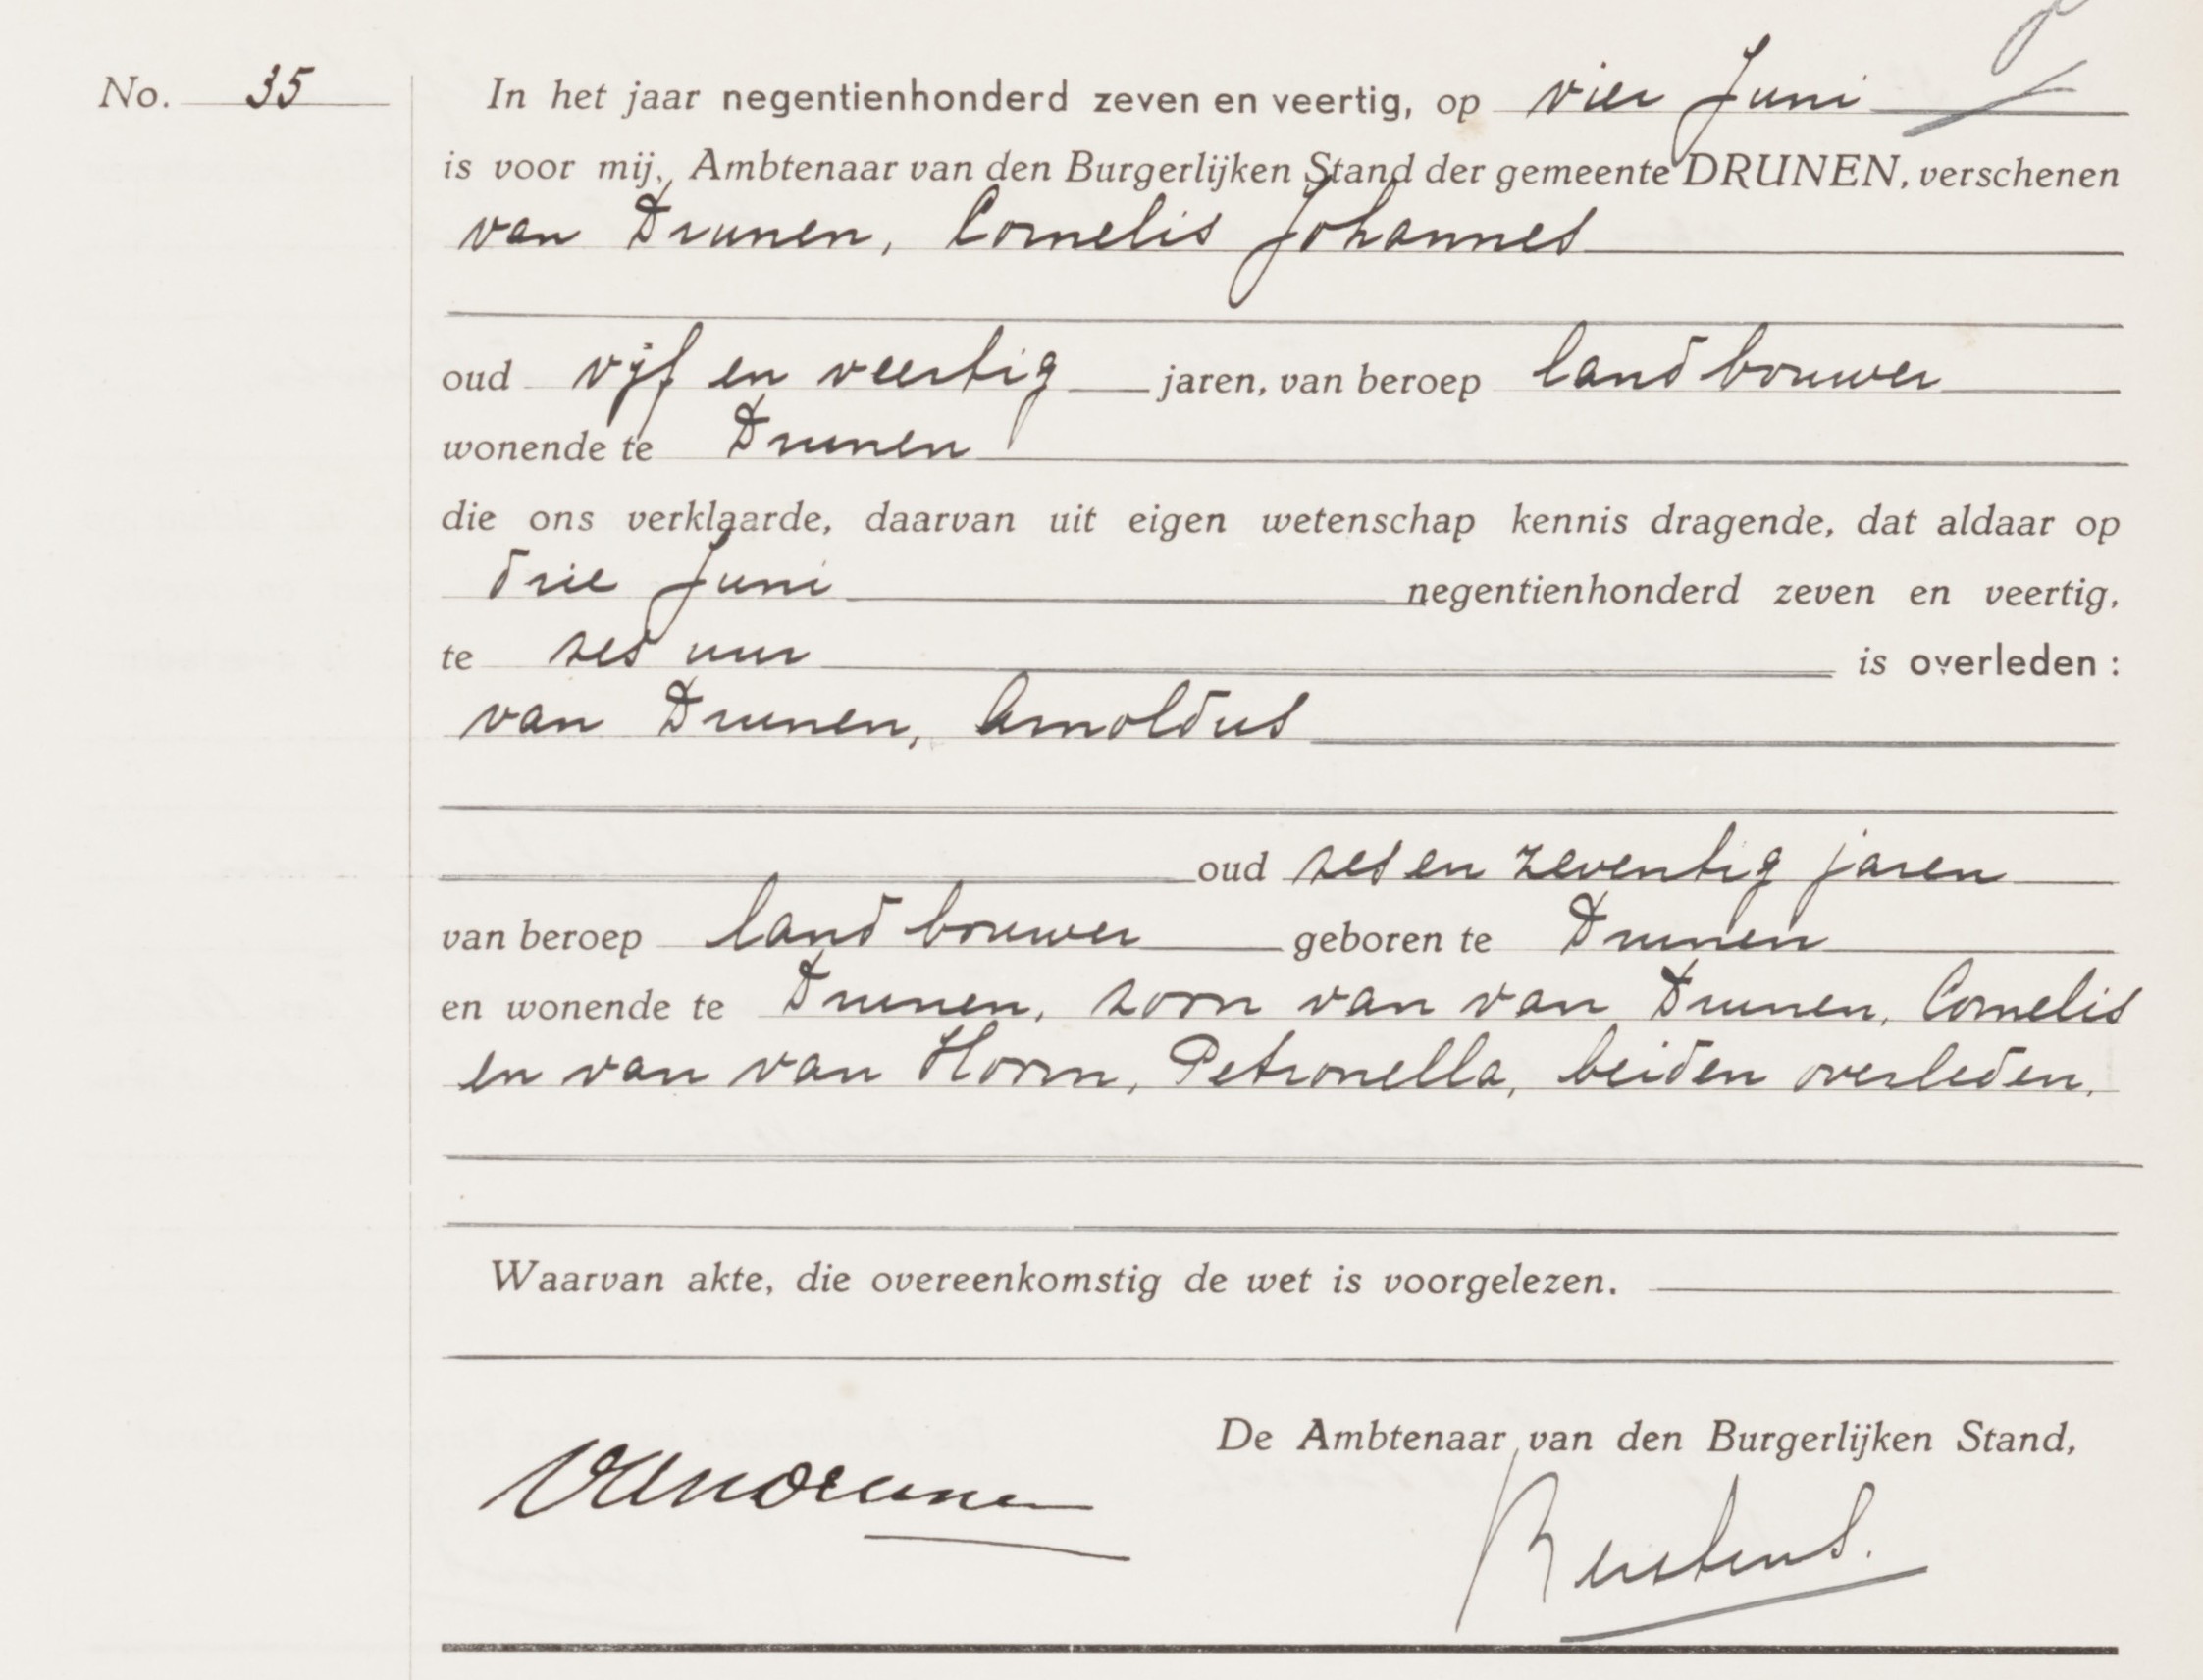 No. 35
In het jaar negentienhonderd zeven en veertig, op vier Juni
is voor mij, Ambtenaar van den Burgerlijken Stand der gemeente DRUNEN, verschenen
van Drunen, Cornelis Johannes
oud vijf en veertig jaren, van beroep landbouwer
wonende te Drunen
die ons verklaarde, daarvan uit eigen wetenschap kennis dragende, dat aldaar op
drie Juni negentienhonderd zeven en veertig,
te zes uur is overleden :
van Drunen, Arnoldus
oud zes en zeventig jaren
van beroep landbouwer geboren te Drunen
en wonende te Drunen, zoon van van Drunen, Cornelis
en van van Hoorn, Petronella, beiden overleden.
Waarvan akte, die overeenkomstig de wet is voorgelezen.
De Ambtenaar van den Burgerlijken Stand,
van Drunen